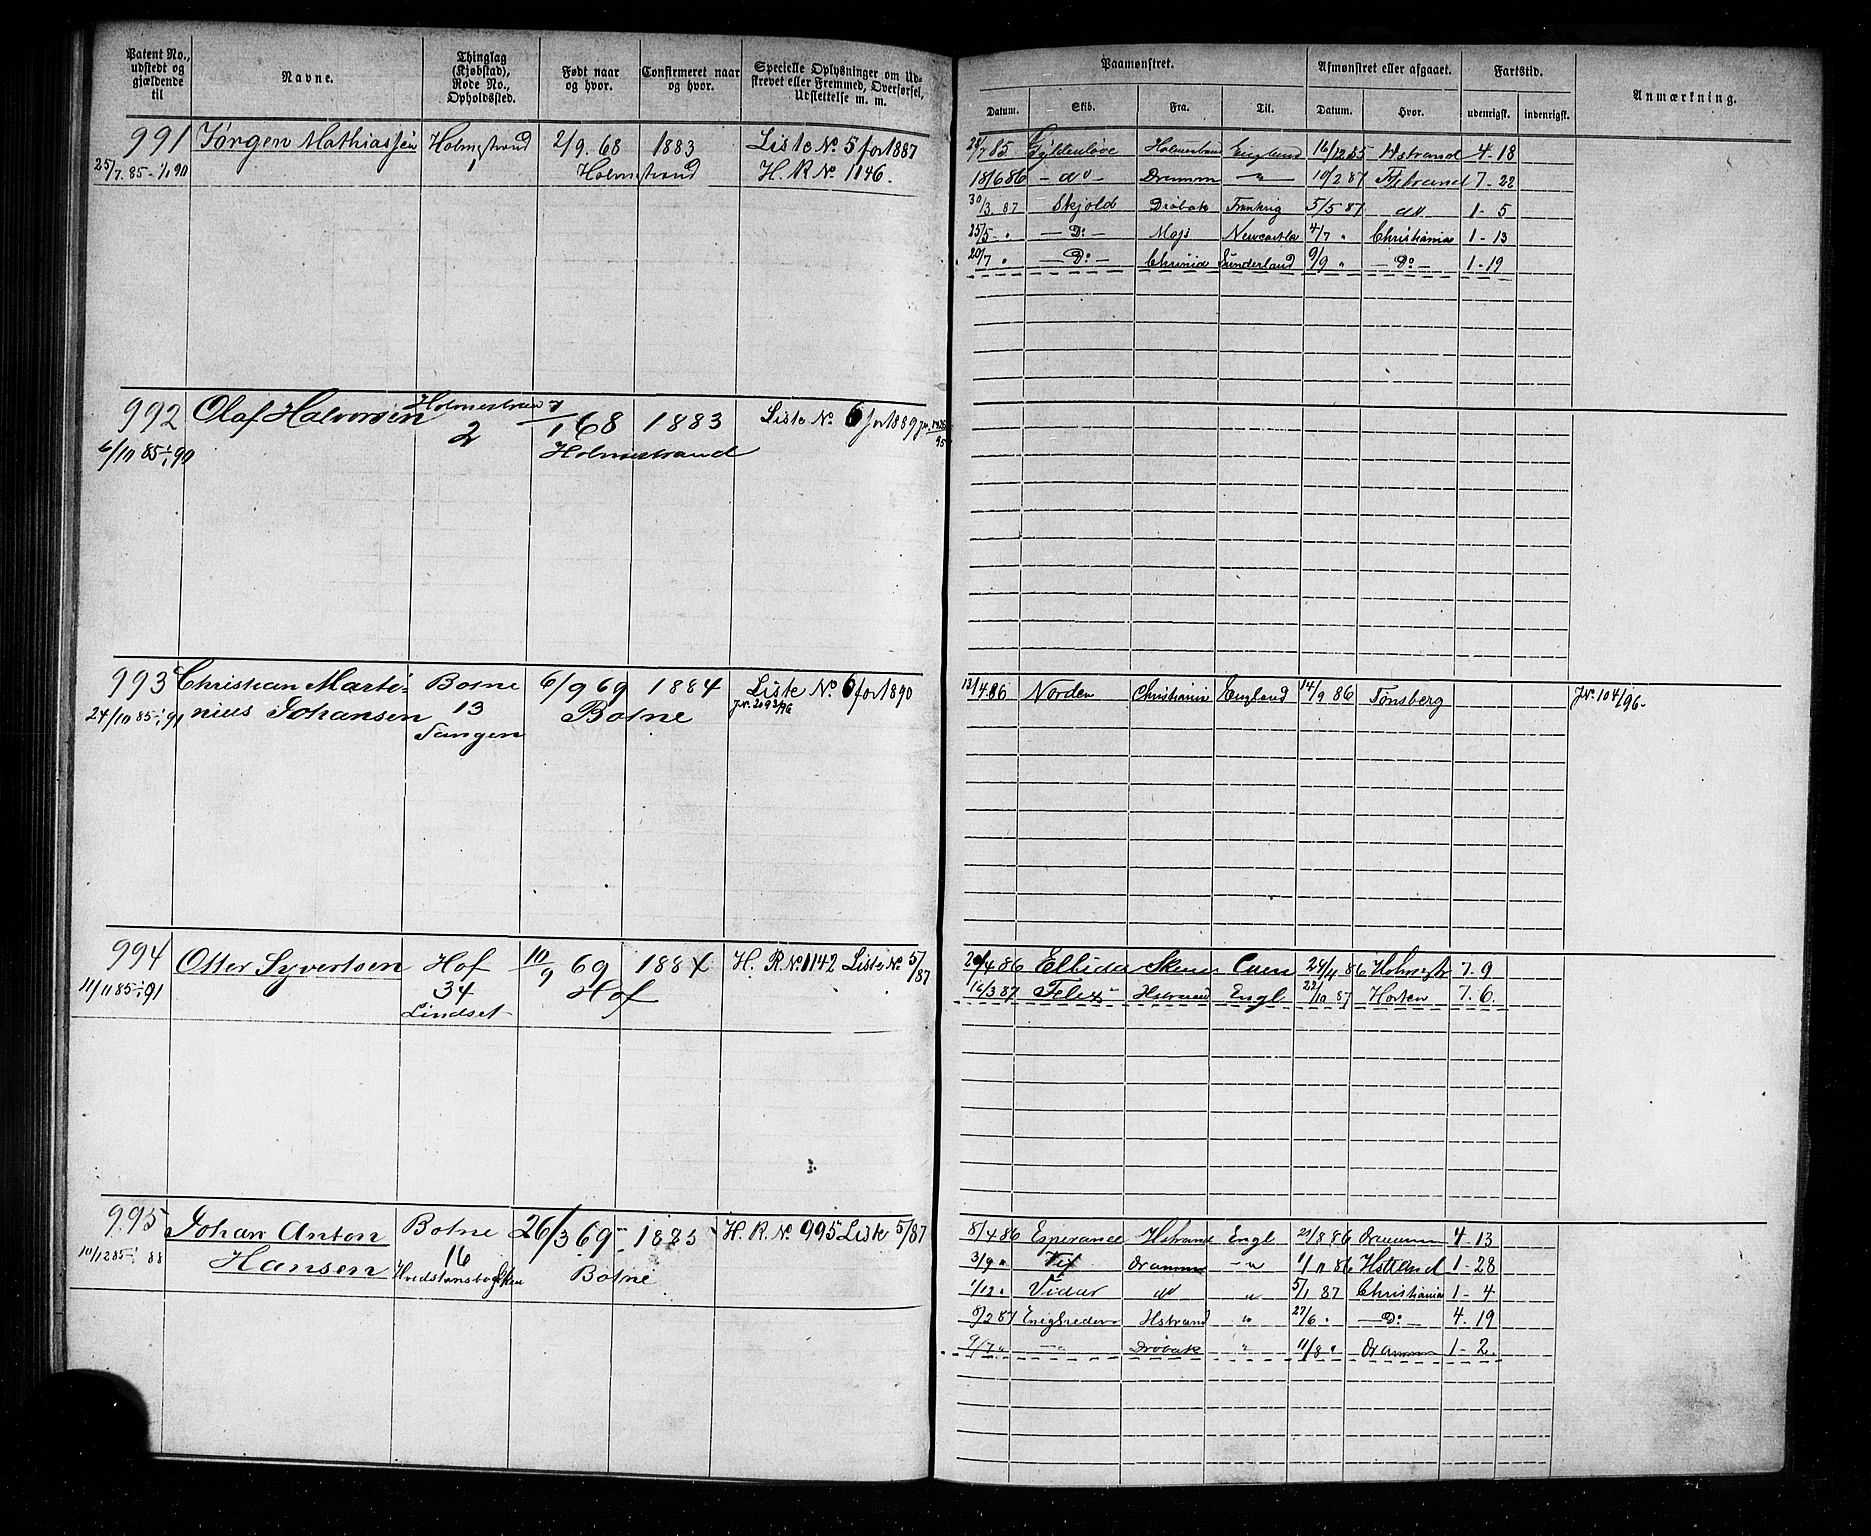 Patent No., udstedt og gjældende til
Navne.
Thinglag (Kjøbstad), Rode No., Opholdssted.
Født naar og hvor.
Confirmeret naar og hvor.
Specielle Oplysninger om Udskrevet eller Fremmed, Overførsel, Udslettelse m. m.
Paamønstret.
Afmønstret eller afgaaet.
Fartstid.
Anmærkning.
Datum. Skib. Fra. Til. Datum. Hvor. udenrigsk. indenrigsk.
991 Jørgen Mathiassen Holmestrand 2/9. 68 1883 Liste No 5 for 1887
25/7. 85 - 1/1 90 1 Holmestrand H. R No 1146.
7 85 Gyldenløve Holmestrand England 16/12 85 Hstrand 4-18
18/6 86 - do - Dramm - " - 10/2 87 7-22
30/3 87 Skjold Drøbak Frankrig 5/5 87 do 1-5
25/5 - " - Do - Moss Newcastle 4/7 " Christiania 1-13
20/7 " - Do - Chrania Sunderland 9/9 " - Do - 1-19
992 Olaf Halvorsen Holmestrand 68 1883 Liste No. 6 for 1889
6/10 85 - 1/1 90 2 Holmestrand
993 Christian Marti- Botne 6/9 69 1884 Liste No 6 for 1890
24/10 85 - 1/1 91 nius Johansen 13 Botne
Tangen
13/4 86 Norden Christiania England 14/9 86 Tønsberg JNr. 104/96.
994 Otter Syvertsen Hof 10/9 69 1884 H. R No 1142 Liste No 5/87
11/11 85 - 1/1 91 34 Hof
Lindset
4 86 Ellida Skien Caen 86 Holmestr 7-9
16/3 87 Felix Hstrand Engl 22/10 87 Horten 7. 6.
995 Johan Anton Botne 26/3 69 1885 H. R. No. 995 Liste 5/87
10/12 85 - 1/1 88 Hansen 16 Botne
8/4 86 Esperance Hstrand Engl 21/8 86 Drammen 4-13
3/9 " Drammen - " 1/11 86 Hstrand 1-28
1/12 " Vidar do " 5/1 87 Christiania 1-4
8/2 87 Enigheden Hstrand " 27/6 " - Do - 4. 19
9/7 " - " - Drøbak " 11/8 " Drammen 1-2.